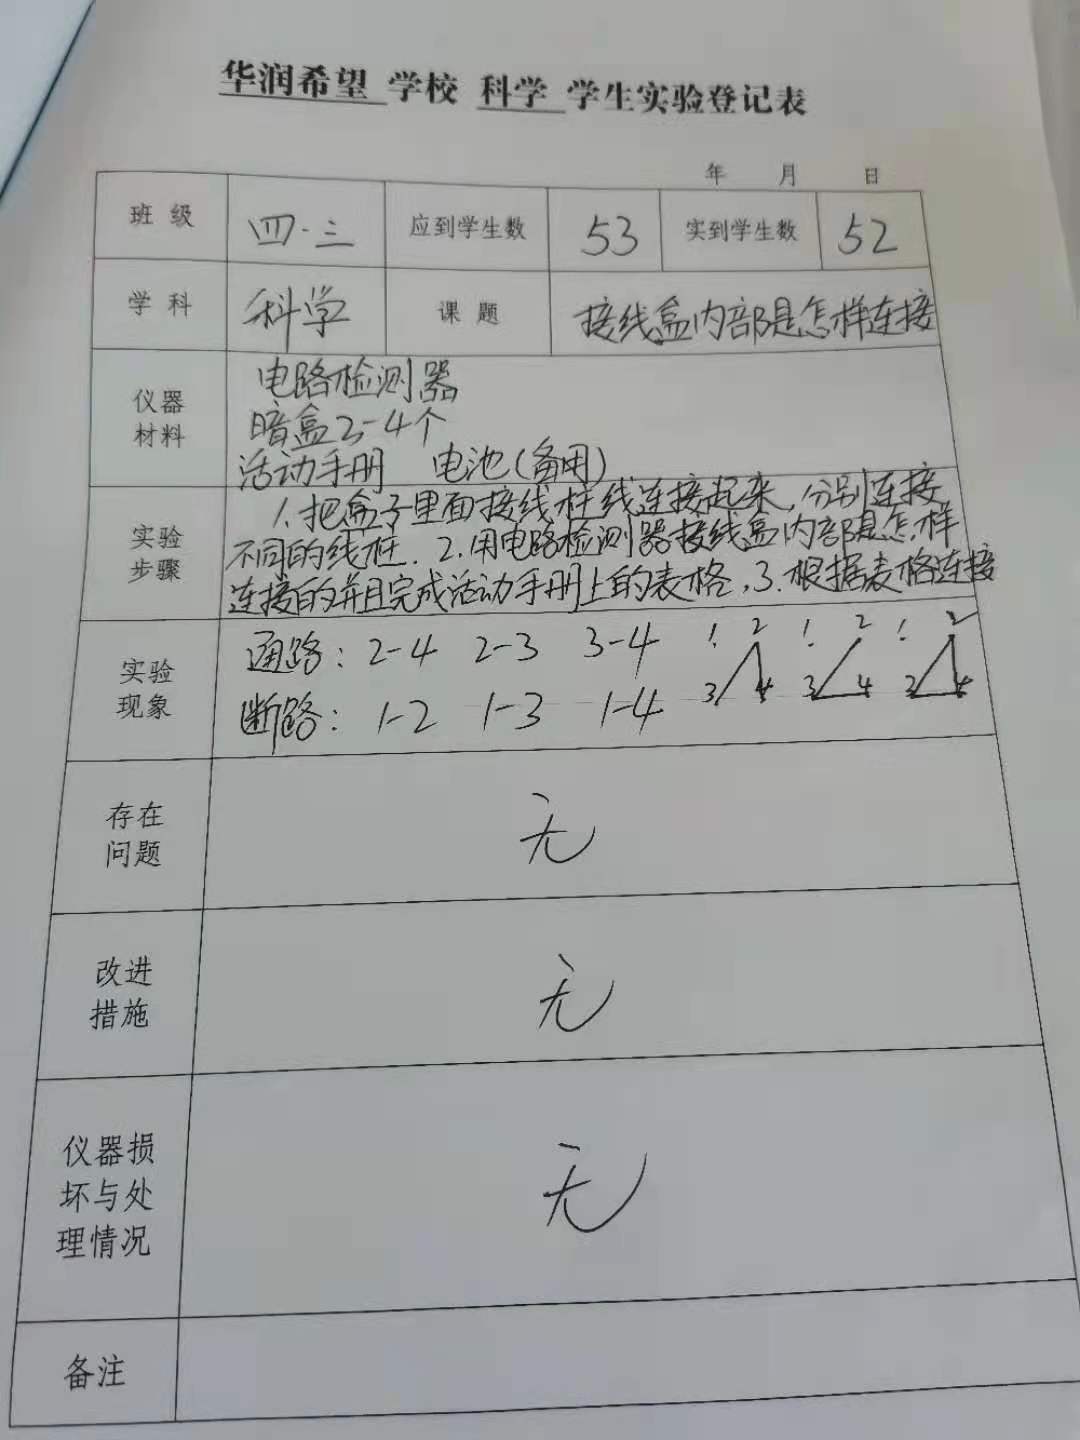 华润希望 学校 科学 学生实验登记表
年 月 日
班级 四·三 应到学生数 53 实到学生数 52
学科 科学 课题 接线盒内部是怎样连接
仪器材料
电路检测器
暗盒2-4个
活动手册 电池(备用)
实验步骤
1.把盒子里面接线柱线连接起来,分别连接
不同的线柱.2.用电路检测器接线盒内部是怎样
连接的并且完成活动手册上的表格,3.根据表格连接
实验现象
通路:2-4 2-3 3-4 1. 2 1. 2 1. 2
3 4 3 4 3 4
断路:1-2 1-3 1-4
存在问题
无
改进措施
无
仪器损坏与处理情况
无
备注